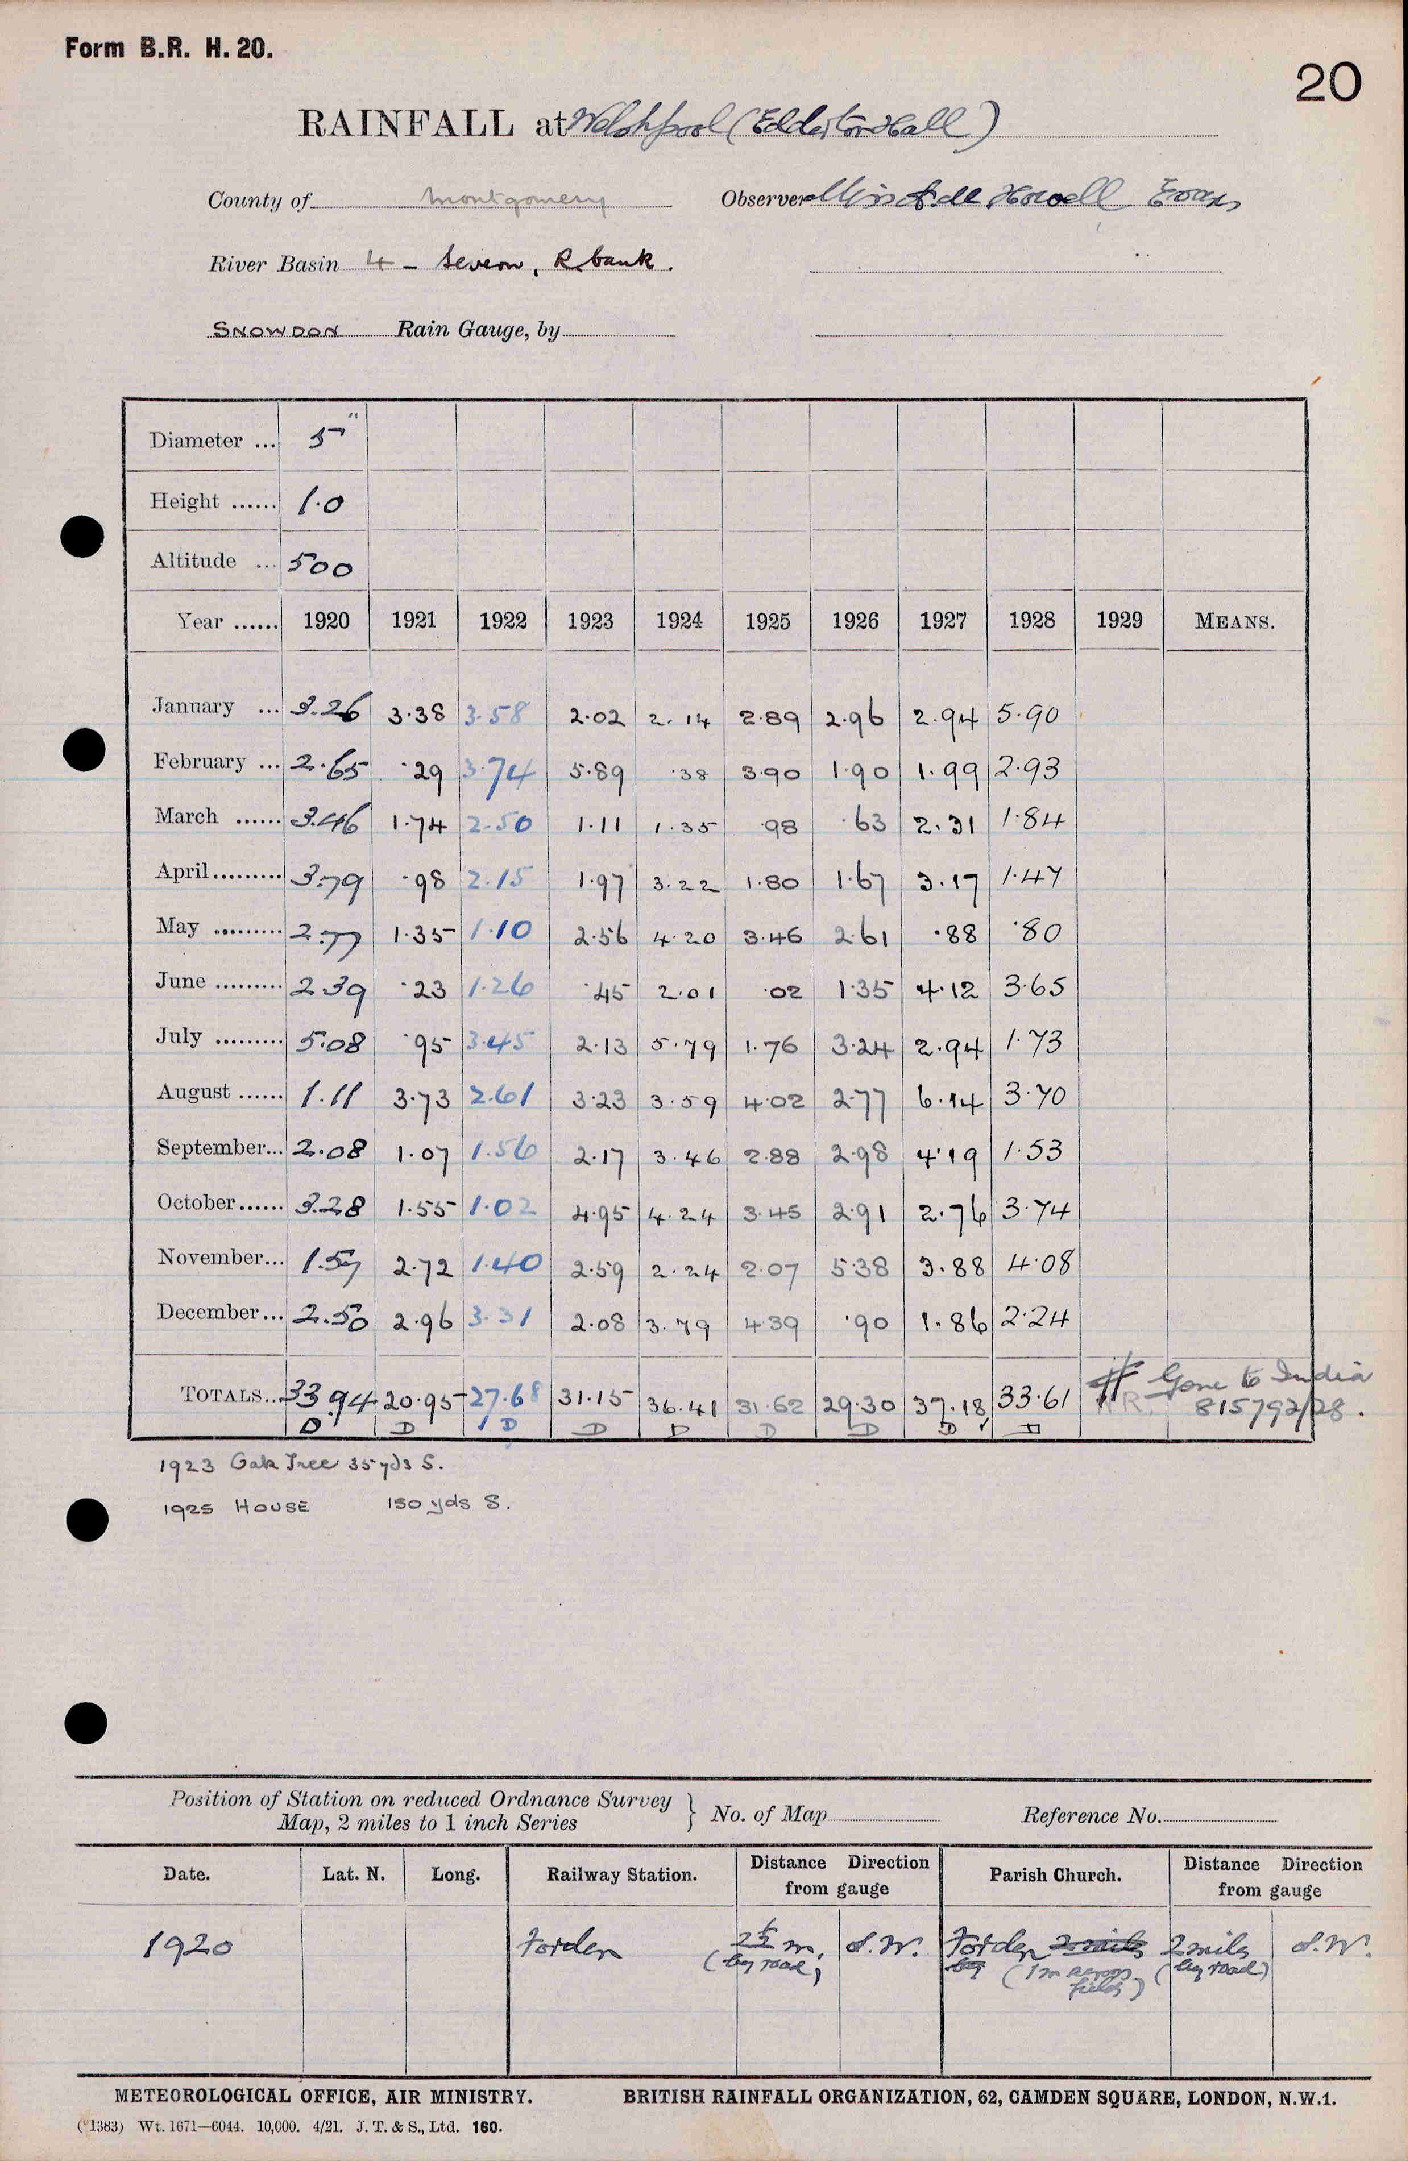 Form B.R. H. 20.
20
RAINFALL at Welshpool (Edderton Hall)
County of Montgomery Observer Miss Howell Evans
River Basin 4 - Severn, R. bank.
SNOWDON Rain Gauge, by
Diameter ... 5"
Height ...... 1.0
Altitude ... 500
Year ...... 1920 1921 1922 1923 1924 1925 1926 1927 1928 1929 MEANS.
January ... 3.26 3.38 3.58 2.02 2.14 2.89 2.96 2.94 5.90
February ... 2.65 .29 3.74 5.89 .38 3.90 1.90 1.99 2.93
March ...... 3.46 1.74 2.50 1.11 1.35 .98 .63 2.31 1.84
April......... 3.79 .98 2.15 1.97 3.22 1.80 1.67 3.17 1.47
May ......... 2.77 1.35 1.10 2.56 4.20 3.46 2.61 .88 .80
June ......... 2.39 .23 1.26 .45 2.01 .02 1.35 4.12 3.65
July ......... 5.08 .95 3.45 2.13 5.79 1.76 3.24 2.94 1.73
August ...... 1.11 3.73 2.61 3.23 3.59 4.02 2.77 6.14 3.70
September... 2.08 1.07 1.56 2.17 3.46 2.88 2.98 4.19 1.53
October...... 3.28 1.55 1.02 4.95 4.24 3.45 2.91 2.76 3.74
November... 1.57 2.72 1.40 2.59 2.24 2.07 5.38 3.88 4.08
December... 2.50 2.96 3.31 2.08 3.79 4.39 .90 1.86 2.24
TOTALS... 33.94 20.95 27.68 31.15 36.41 31.62 29.30 37.18 33.61 Gone to India
N.R. 815792/28.
D D D D D D D D D
1923 Oak Tree 35 yds S.
1925 HOUSE 150 yds S.
Position of Station on reduced Ordnance Survey
Map, 2 miles to 1 inch Series } No. of Map Reference No.
Date. Lat. N. Long. Railway Station. Distance Direction from gauge Parish Church. Distance Direction from gauge
1920 Forden 2½ m. S.W. Forden 2 miles 2 miles S.W.
(by road) by (1 m across fields) (by road)
METEOROLOGICAL OFFICE, AIR MINISTRY. BRITISH RAINFALL ORGANIZATION, 62, CAMDEN SQUARE, LONDON, N.W.1.
(*1383) Wt. 1671—6044. 10,000. 4/21. J. T. & S., Ltd. 160.